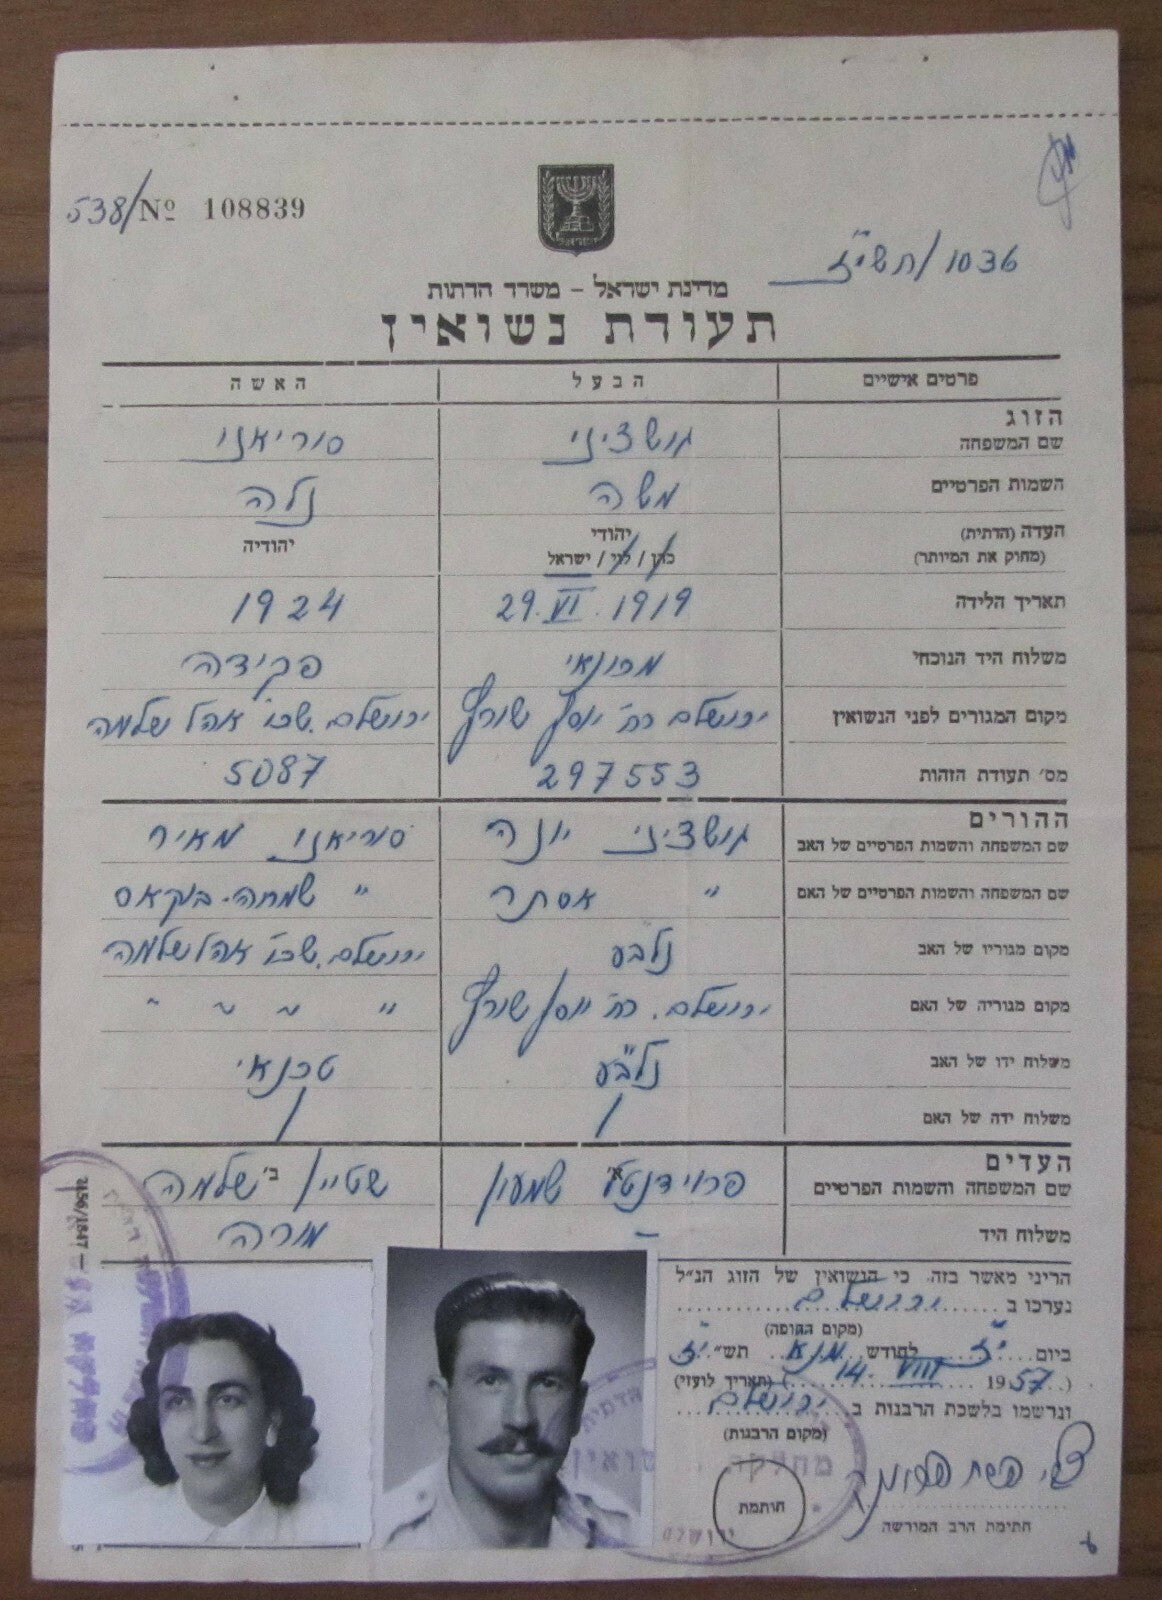 538/ № 108839
1036/תשי"ז
מדינת ישראל – משרד הדתות
תעודת נשואין
פרטים אישיים הבעל האשה
הזוג
שם המשפחה סוריאנו
השמות הפרטיים משה נלה
העדה (הדתית) יהודי יהודיה
(מחוק את המיותר) כהן / לוי / ישראל
תאריך הלידה 29.VI.1919 1924
משלוח היד הנוכחי מכונאי פקידה
מקום המגורים לפני הנשואין ירושלים רח' יוסף ירושלים. שכ' אהל שלמה
מס' תעודת הזהות 297553 5087
ההורים
שם המשפחה והשמות הפרטיים של האב יונה סוריאנו מאיר
שם המשפחה והשמות הפרטיים של האם " אסתר " שמחה-בנקאס
מקום מגוריו של האב נלב"ע ירושלים. שכ' אהל שלמה
מקום מגוריה של האם ירושלים. רח' יוסף " " " "
משלוח ידו של האב נלב"ע טכנאי
משלוח ידה של האם / /
העדים
שם המשפחה והשמות הפרטיים א' שמעון ב' שטיין שלמה
משלוח היד – מורה
הריני מאשר בזה כי הנשואין של הזוג הנ"ל
נערכו ב ירושלים
(מקום החופה)
ביום י"ז לחודש מנ"א תש"י"ז
(14. VIII 1957) (תאריך לועזי)
ונרשמו בלשכת הרבנות ב ירושלים
(מקום הרבנות)
חותמת
חתימת הרב המורשה
מחלקת נשואין
ירושלם